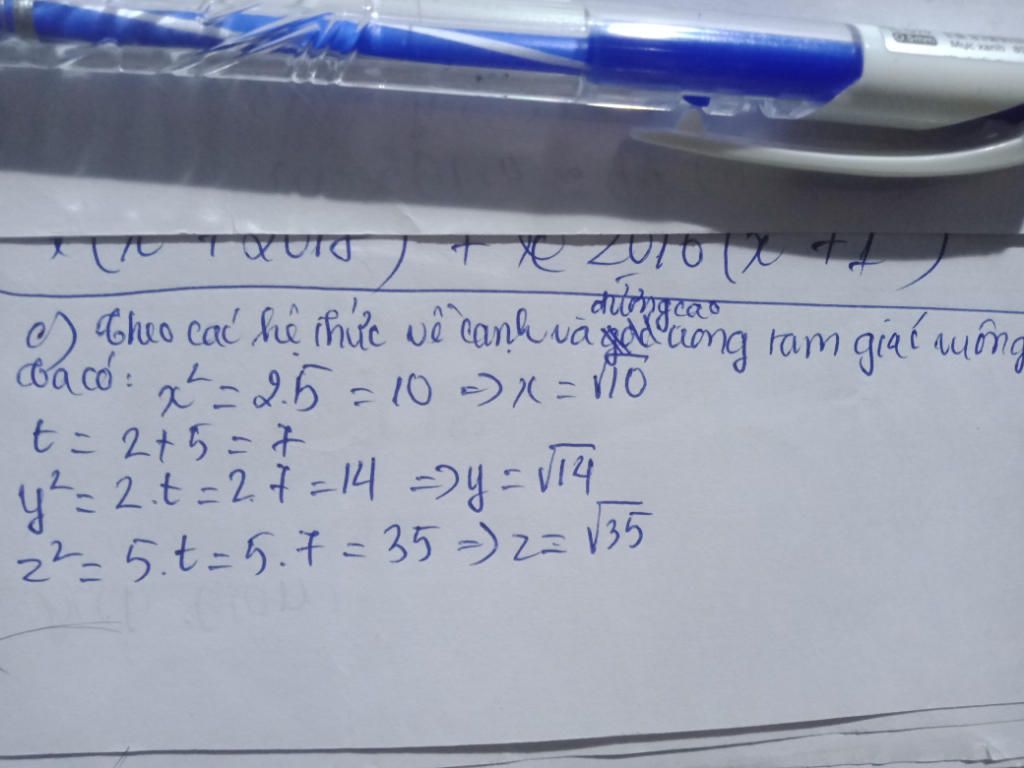 0.5mm
Mực xanh
x(x + 2018) + x 2018(x + 1)
c) Theo các hệ thức về cạnh và đường cao trong tam giác vuông
ta có: x² = 2.5 = 10 => x = √10
t = 2 + 5 = 7
y² = 2.t = 2.7 = 14 => y = √14
z² = 5.t = 5.7 = 35 => z = √35